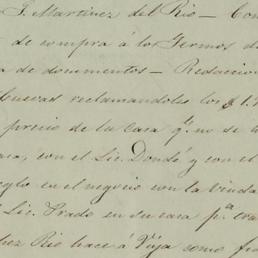 J. Martinez del Rio — Con
de compra á los Germos d
a de documentos — Redaccion
Cuevas reclamandoles los $1.
precio de la casa q.e no se
ara, con el Lic. Dondé y con el
reglo en el negocio con la viuda
Lic. Prado en su casa p.a
dez Rio hace á Vija como